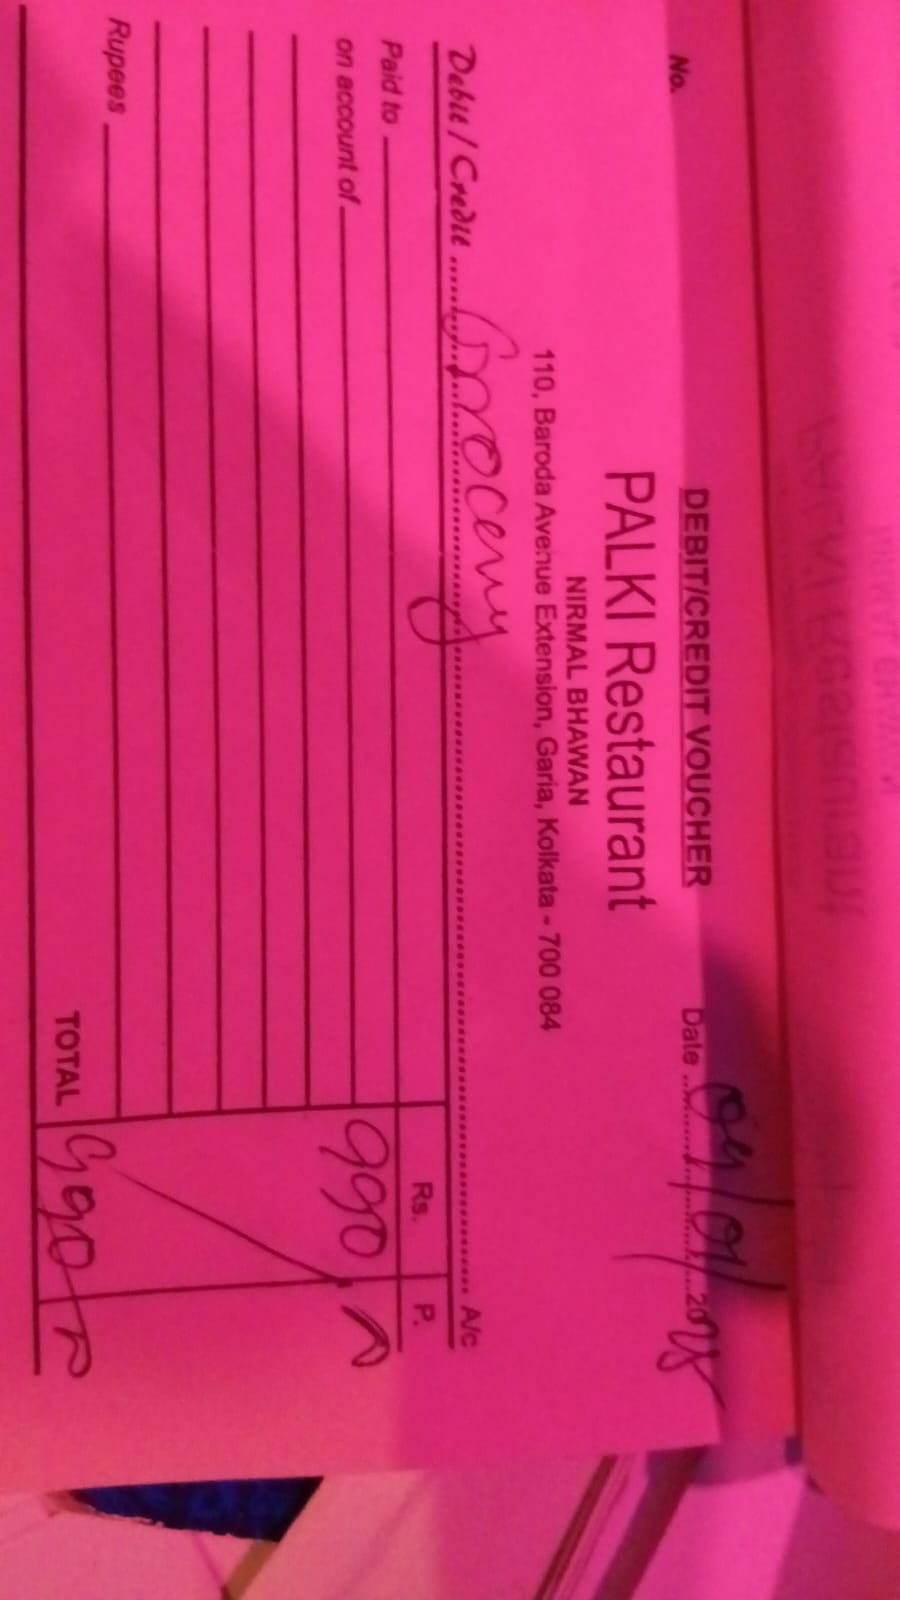 No.
DEBIT/CREDIT VOUCHER
Date
PALKI Restaurant
NIRMAL BHAWAN
110, Baroda Avenue Extension, Garia, Kolkata - 700 084
Debit / Credit Grocery A/c
Rs. P.
Paid to
on account of 990
Rupees
TOTAL 990